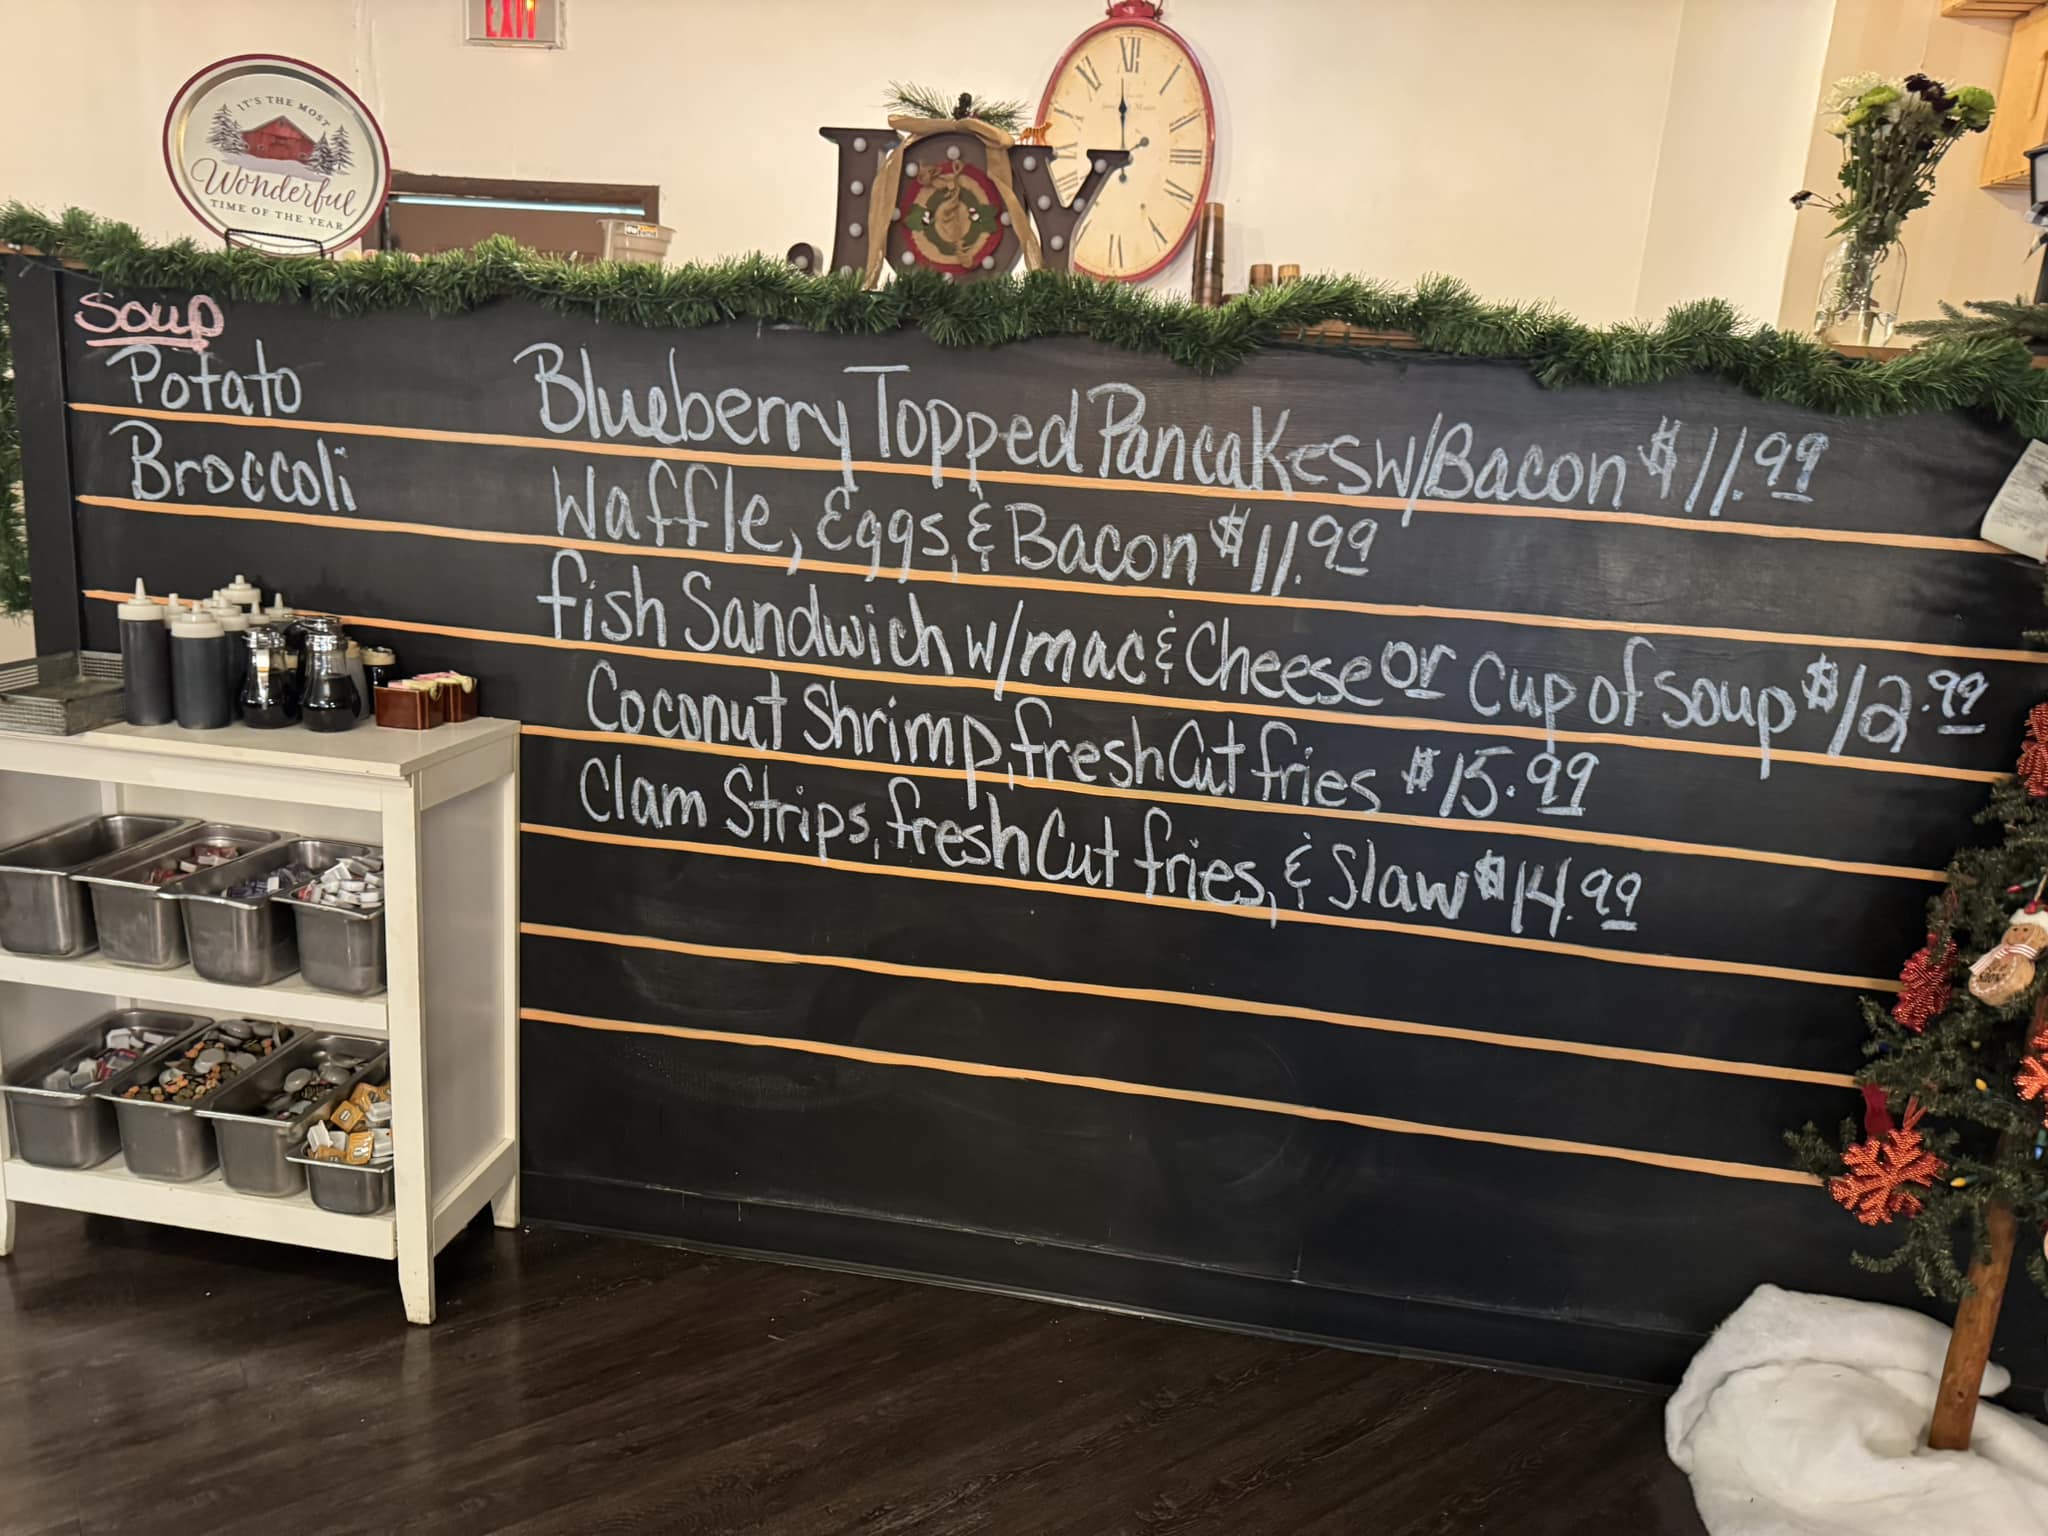 EXIT
IT'S THE MOST
Wonderful
TIME OF THE YEAR
JOY
XII
Soup
Potato
Broccoli
Blueberry Topped Pancakes w/Bacon $11.99
Waffle, Eggs, & Bacon $11.99
fish Sandwich w/mac & Cheese or Cup of soup $12.99
Coconut Shrimp, fresh Cut fries $15.99
Clam Strips, fresh Cut fries, & Slaw $14.99